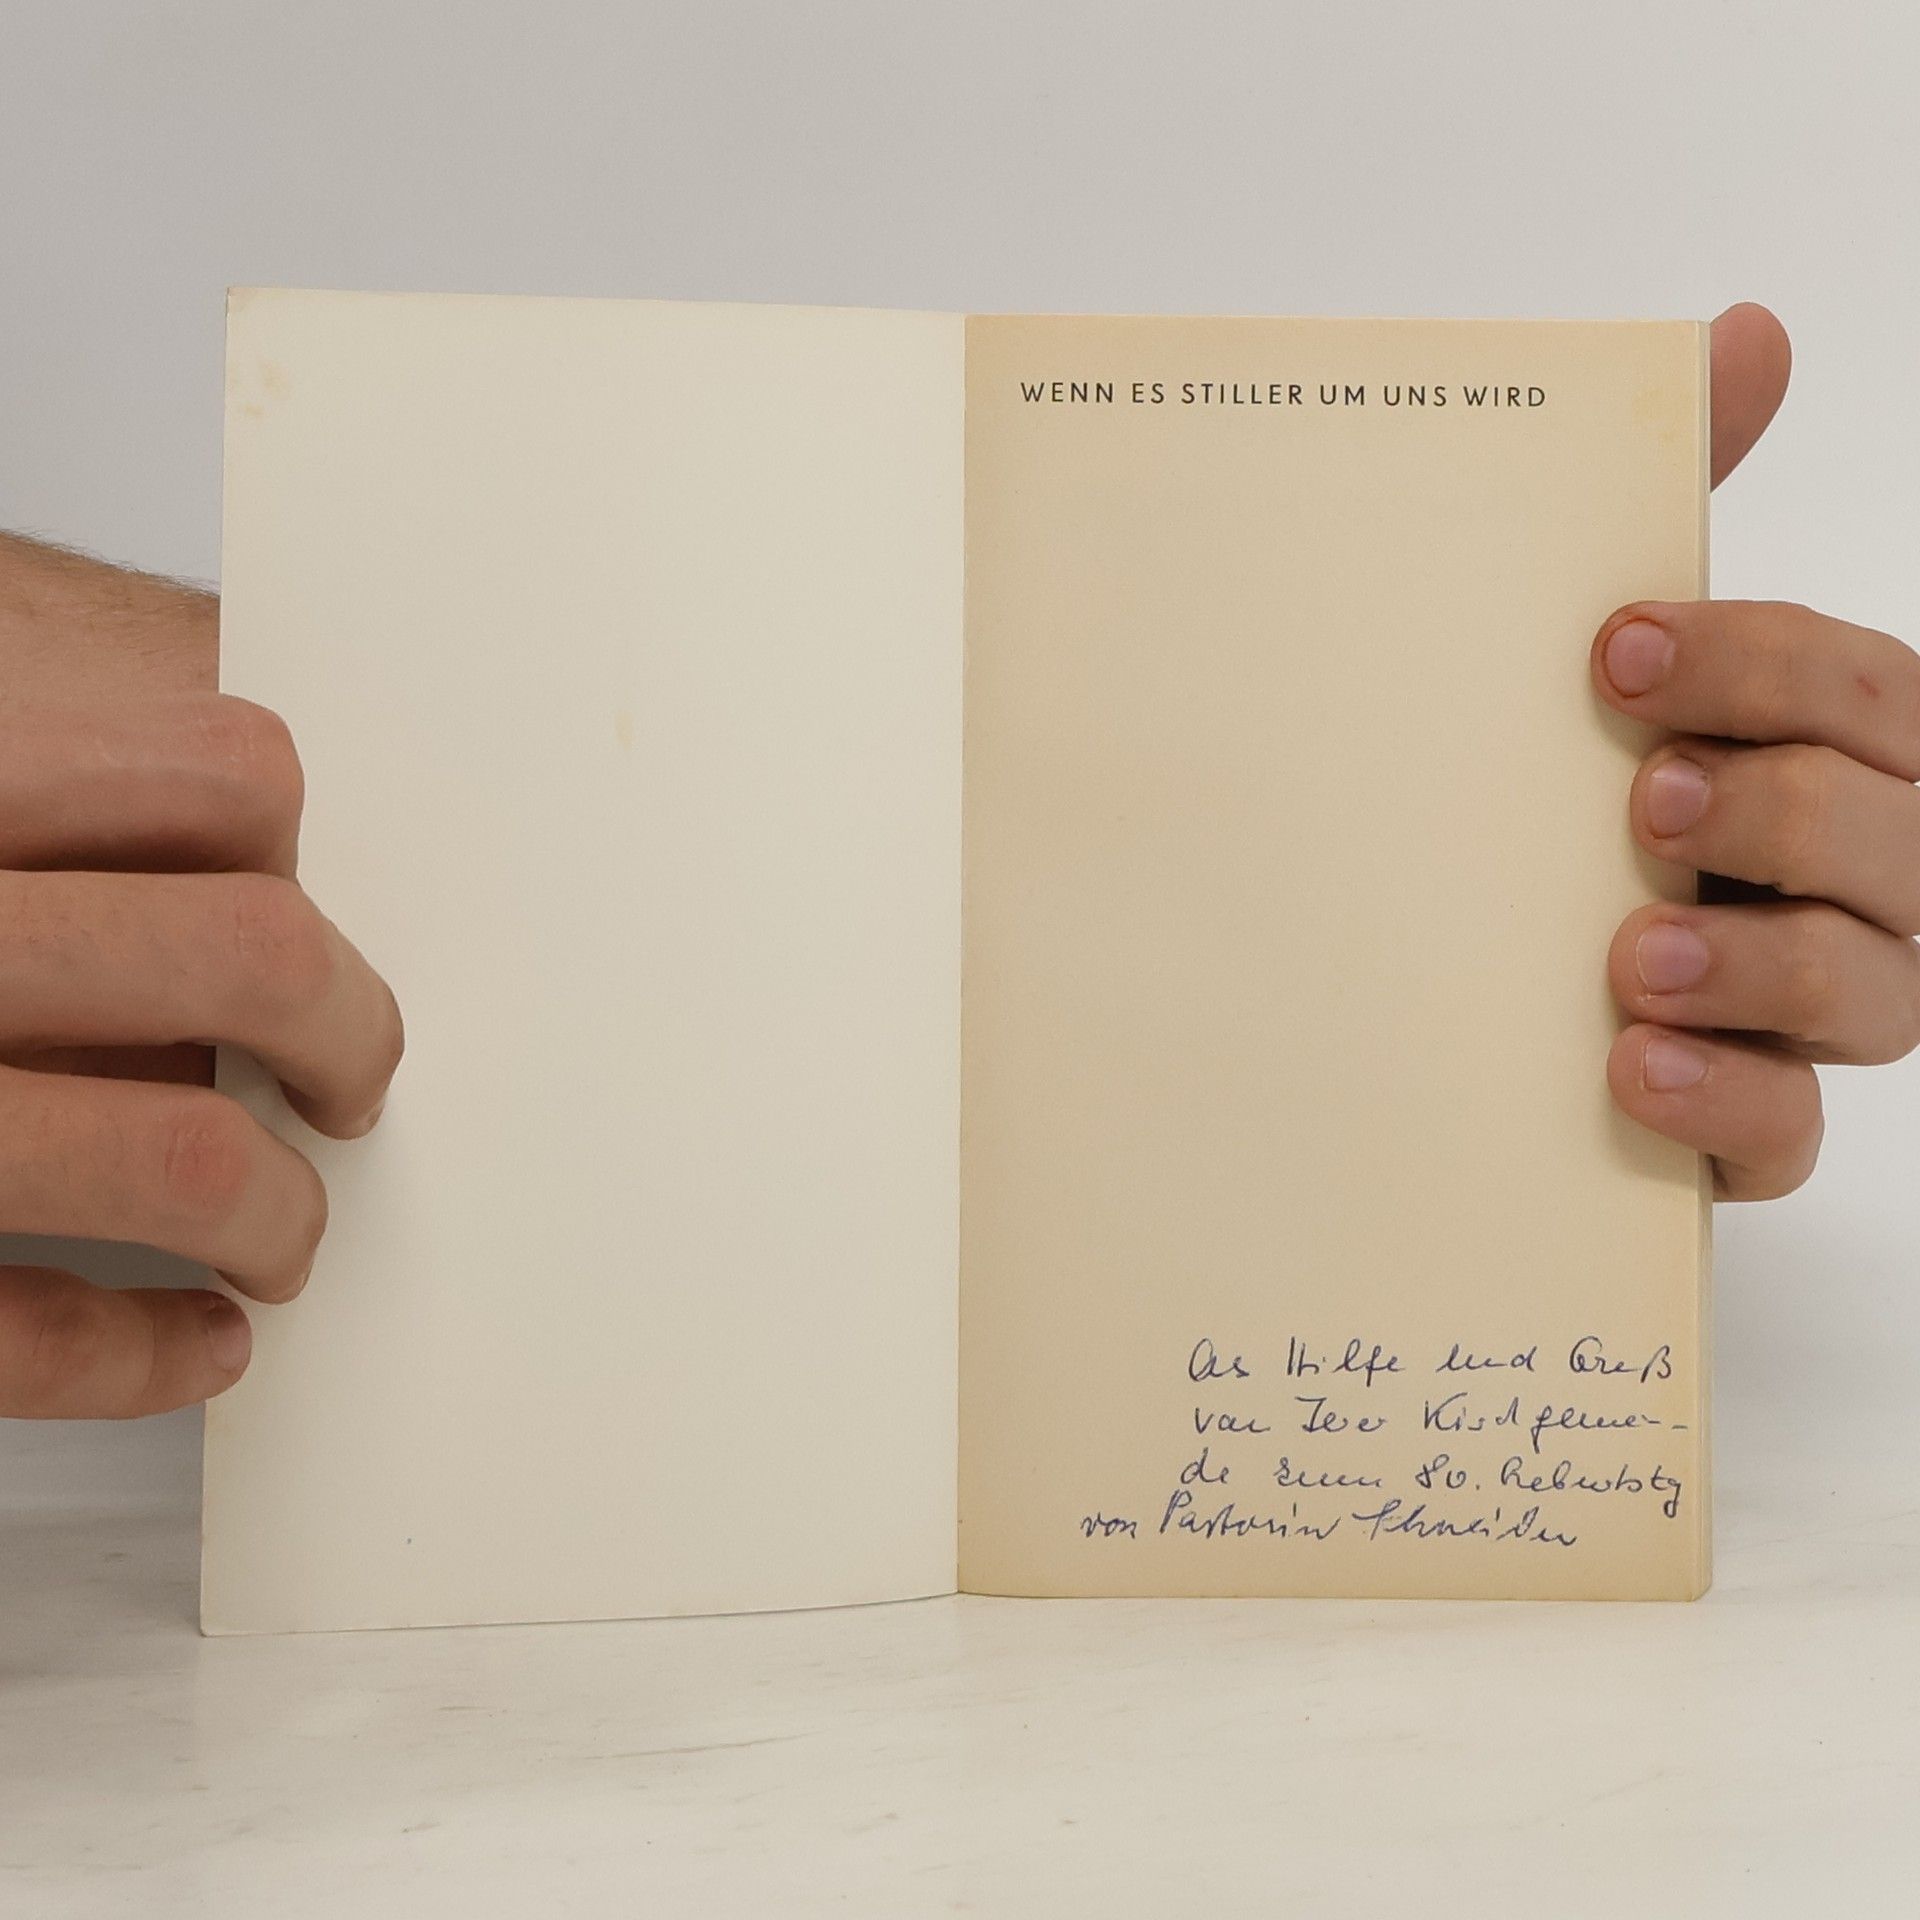 WENN ES STILLER UM UNS WIRD
Als Hilfe und Gruß
von Ihrer Kirchgemein-
de zum 80. Geburtstg
von Pastorin Schneider